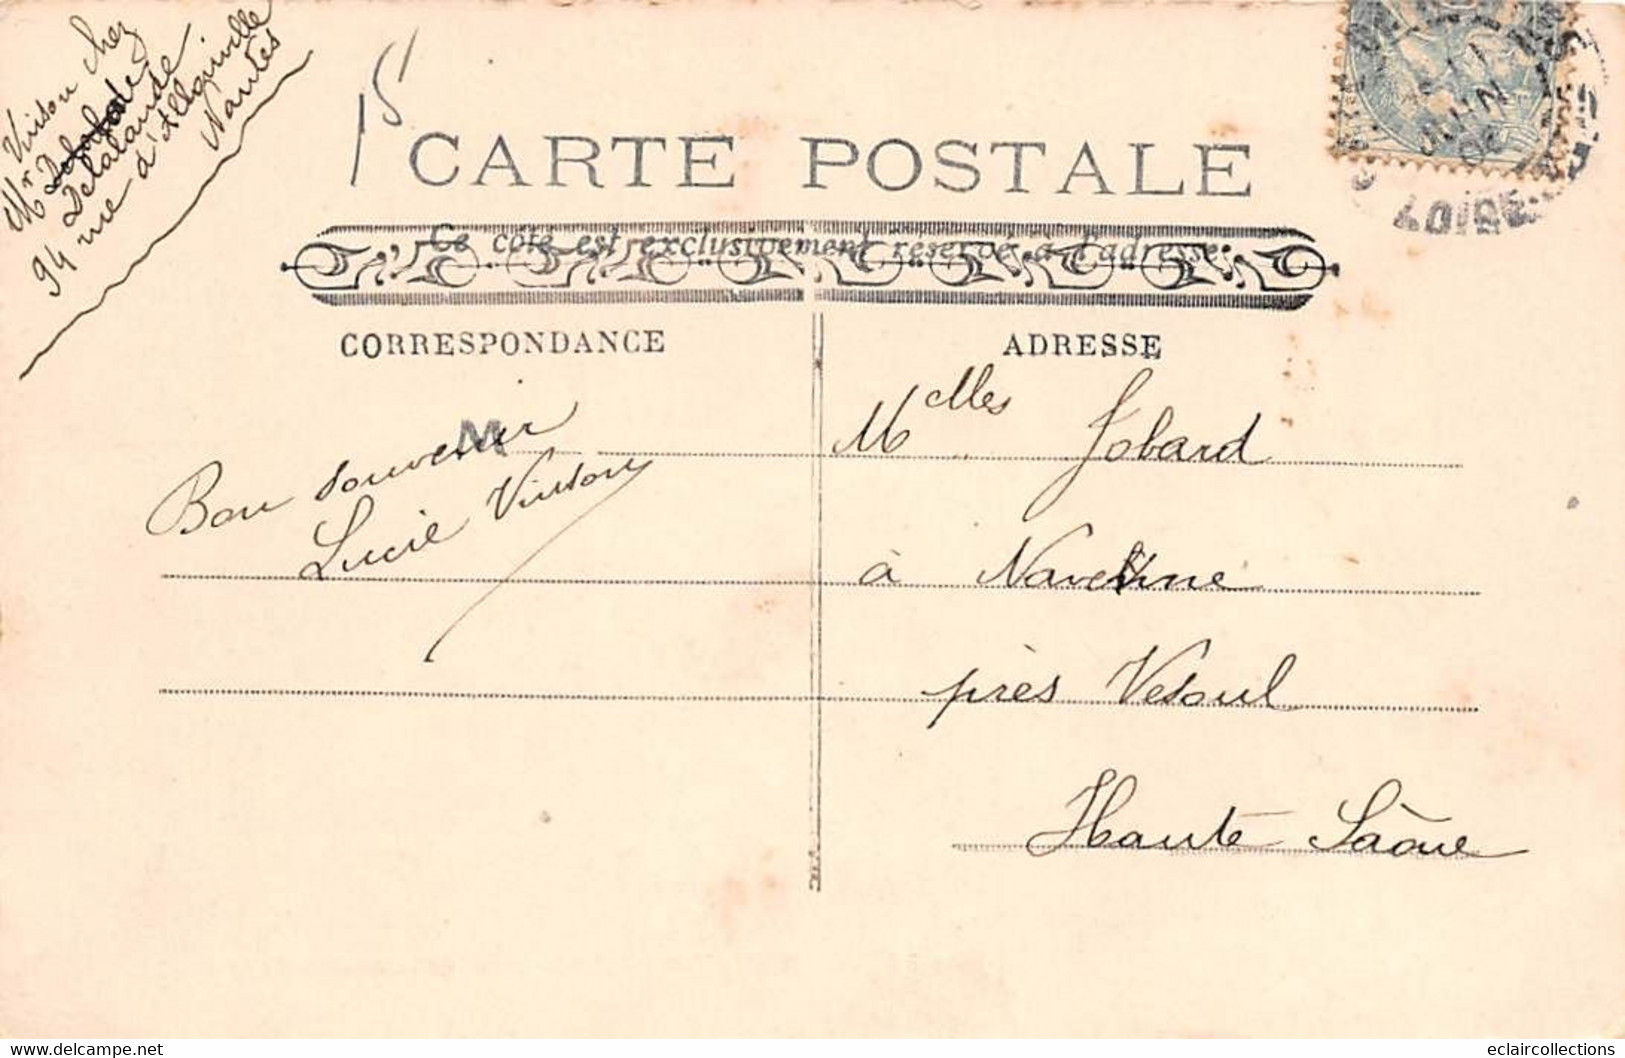 Vinson chez
Mr
Delalande
94 rue d'Allonville
Nantes
15
CARTE POSTALE
Ce côté est exclusivement réservé à l'adresse
CORRESPONDANCE
ADRESSE
Bon souvenir
Lucie Vinson
M
Melles Jobard
à Navenne
près Vesoul
Haute Saône
JUIN
LOIRE
delcampe.net
eclaircollections